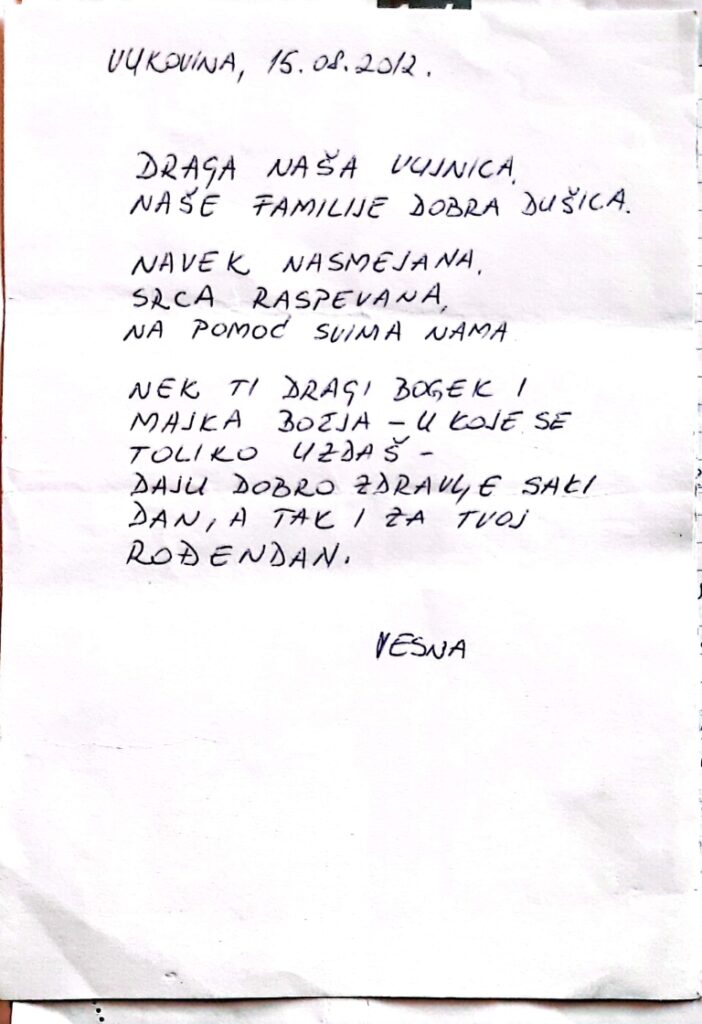 VUKOVINA, 15.08.2012.
DRAGA NAŠA VUJNICA,
NAŠE FAMILIJE DOBRA DUŠICA.
NAVEK NASMEJANA,
SRCA RASPEVANA,
NA POMOĆ SVIMA NAMA
NEK TI DRAGI BOGEK I
MAJKA BOŽJA - U KOJE SE
TOLIKO UZDAŠ -
DAJU DOBRO ZDRAVLJE SAKI
DAN, A TAK I ZA TVOJ
ROĐENDAN.
VESNA